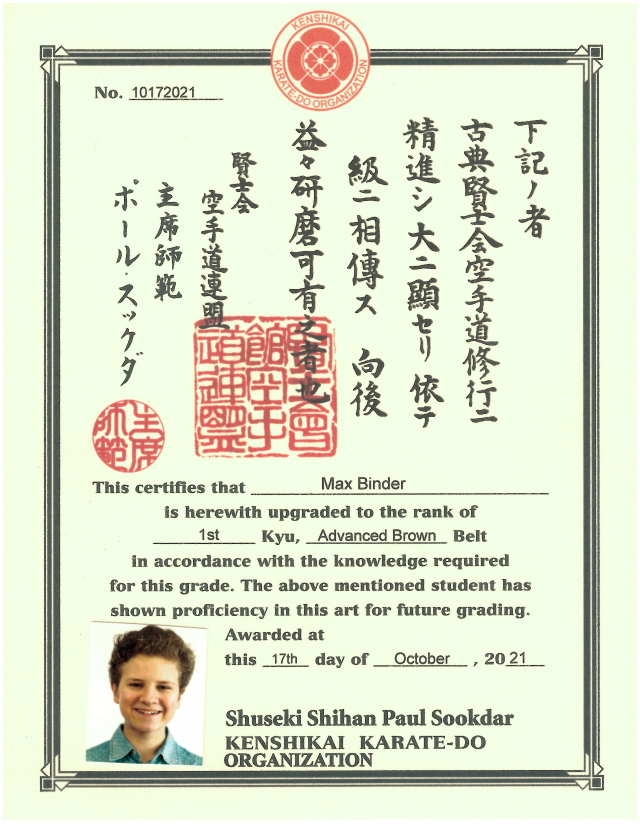 KENSHIKAI
KARATE-DO ORGANIZATION
No. 10172021
下記ノ者
古典賢士会空手道修行ニ
精進シ大ニ顯セリ依テ
級ニ相傳ス 向後
益々研磨可有之者也
賢士会
空手道連盟
主席師範
ポール・スックダ
主席
師範
This certifies that Max Binder
is herewith upgraded to the rank of
1st Kyu, Advanced Brown Belt
in accordance with the knowledge required
for this grade. The above mentioned student has
shown proficiency in this art for future grading.
Awarded at
this 17th day of October , 20 21
Shuseki Shihan Paul Sookdar
KENSHIKAI KARATE-DO
ORGANIZATION